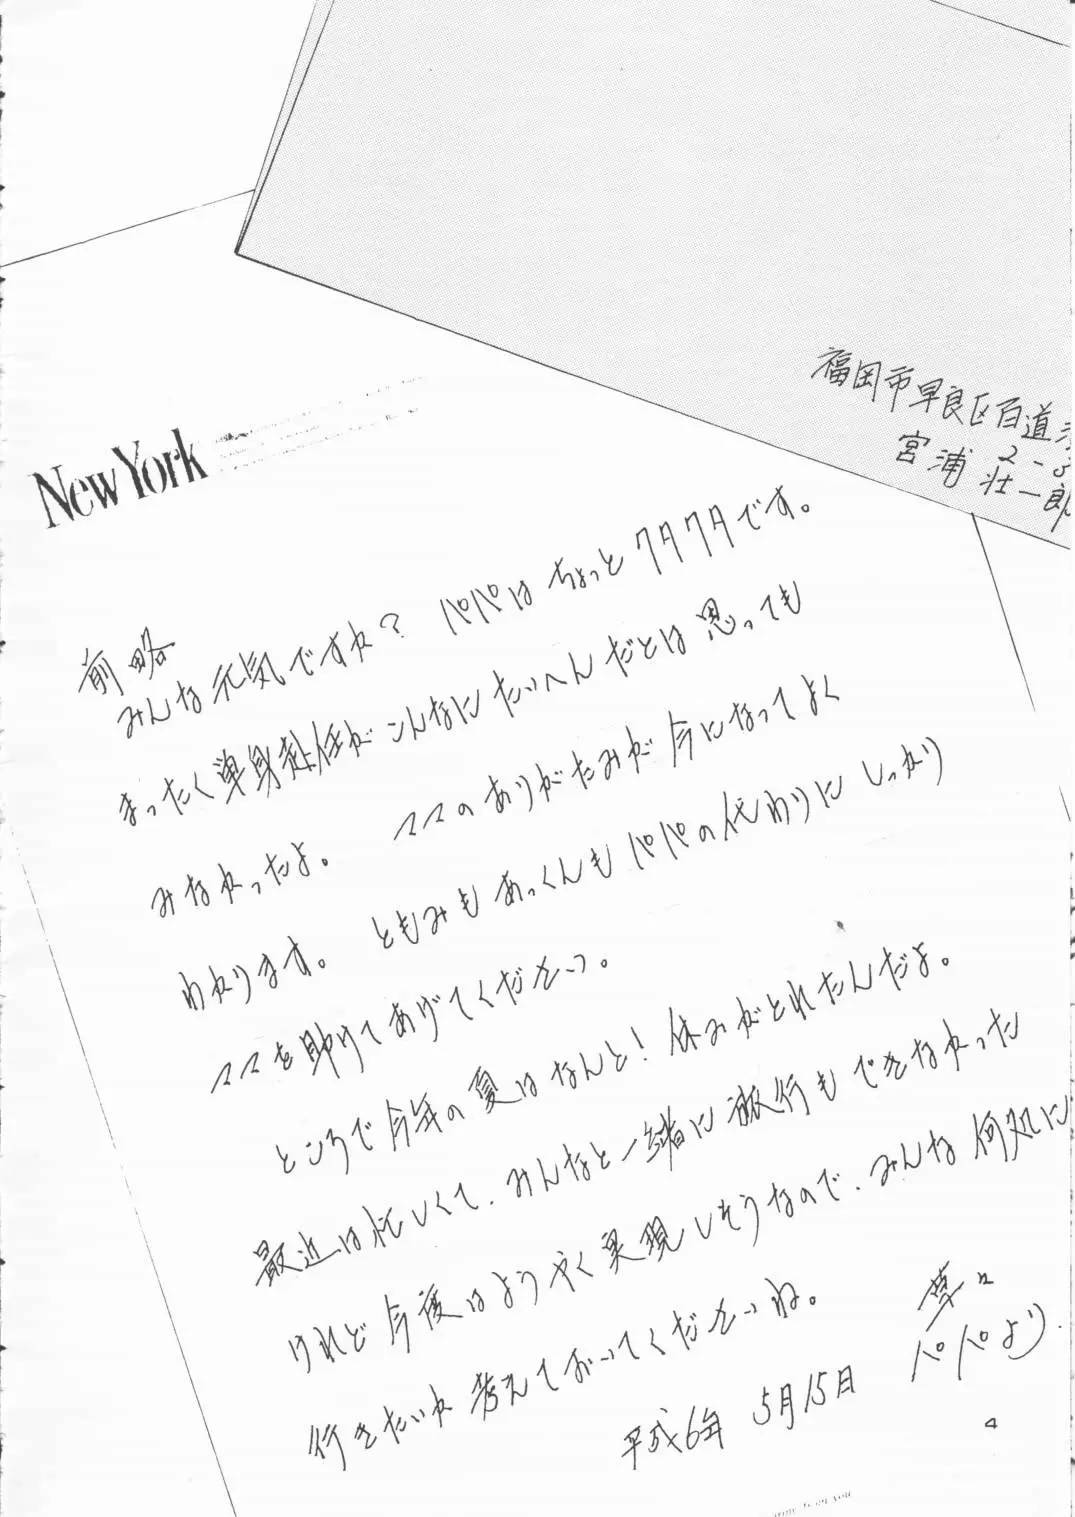 福岡市早良区百道
2-
宮浦 荘一郎
New York
前略
みんな元気ですか? パパはちょっとクタクタです。
まったく単身赴任がこんなにたいへんだとは思っても
みなかったよ。 ママのありがたみが今になってよく
わかります。 ともみもあっくんもパパの代わりにしっかり
ママを助けてあげてください。
ところで今年の夏はなんと! 休みがとれたんだよ。
最近は忙しくて、みんなと一緒に旅行もできなかった
けれど今度はようやく実現しそうなので、みんな何処に
行きたいか考えておいてくださいね。
草々
平成6年 5月15日 パパより.
4